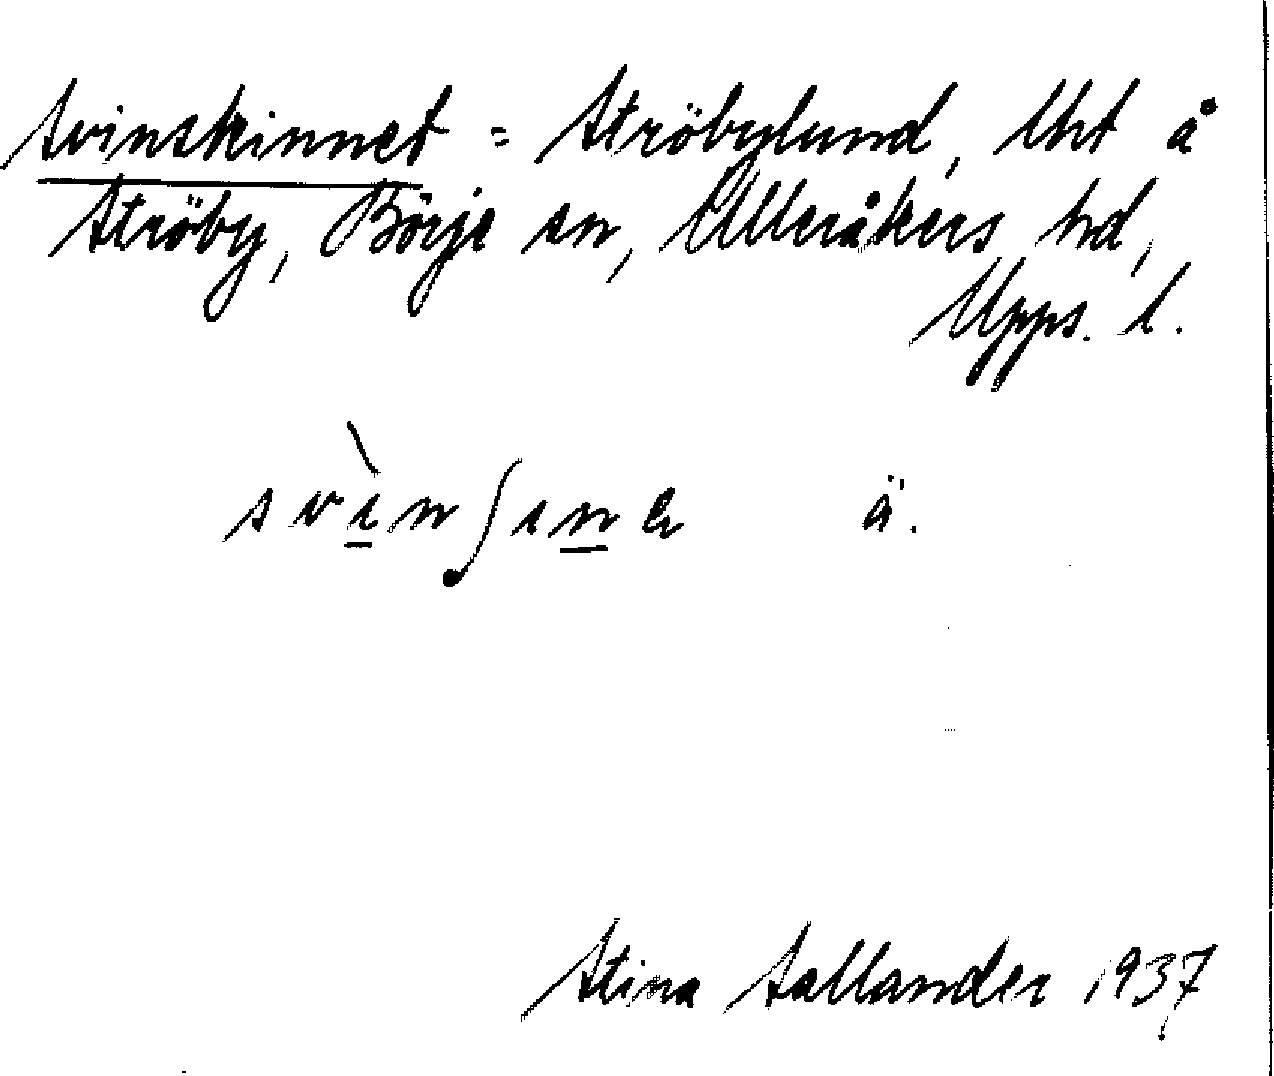 Svinskinnet = Ströbylund, lht å
Ströby, Börje sn, Ulleråkers hd,
Upps. l.
svı̀nʃına ä.
Stina Sallander 1937